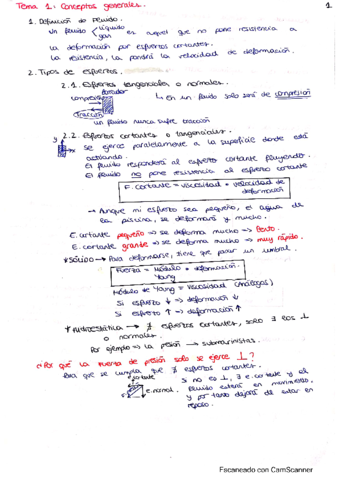 Tema 1: Conceptos generales.
1.
1. Definición de Fluido.
Un fluido líquido gas es aquel que no pone resistencia a
la deformación por esfuerzos cortantes.
La resistencia, la pondrá la velocidad de deformación.
2. Tipos de esfuerzos.
2.1. Esfuerzos tangenciales o normales.
compresión
↳ En un fluido solo será de compresión
tracción
un fluido nunca sufre tracción
2.2. Esfuerzos cortantes o tangenciales.
se ejerce paralelamente a la superficie donde está
actuando.
El fluido responderá al esfuerzo cortante fluyendo.
El fluido no pone resistencia al esfuerzo cortante
F. cortante = viscosidad * velocidad de
deformación
→ Aunque mi esfuerzo sea pequeño, el agua de
la piscina, se deformará y mucho.
E. cortante pequeño => se deforma mucho => lento.
E. cortante grante => se deforma mucho => muy rápido.
*SÓLIDO → Para deformarse, tiene que pasar un umbral.
Fuerza = Módulo * deformación.
Young
Módulo de Young = Viscosidad (Análogos)
Si esfuerzo ↓ => deformación ↓
Si esfuerzo ↑ => deformación ↑
* Hidrostática → ∄ esfuerzos cortantes, solo ∃ los ⊥
o normales.
Por ejemplo => la presión → submarinistas.
¿Por qué la fuerza de presión solo se ejerce ⊥?
Para que se cumpla que ∄ esfuerzos cortantes.
e. cortante
e. normal.
Si no es ⊥, ∃ e. cortante y el
fluido estará en movimiento,
y por tanto dejará de estar en
reposo.
Escaneado con CamScanner